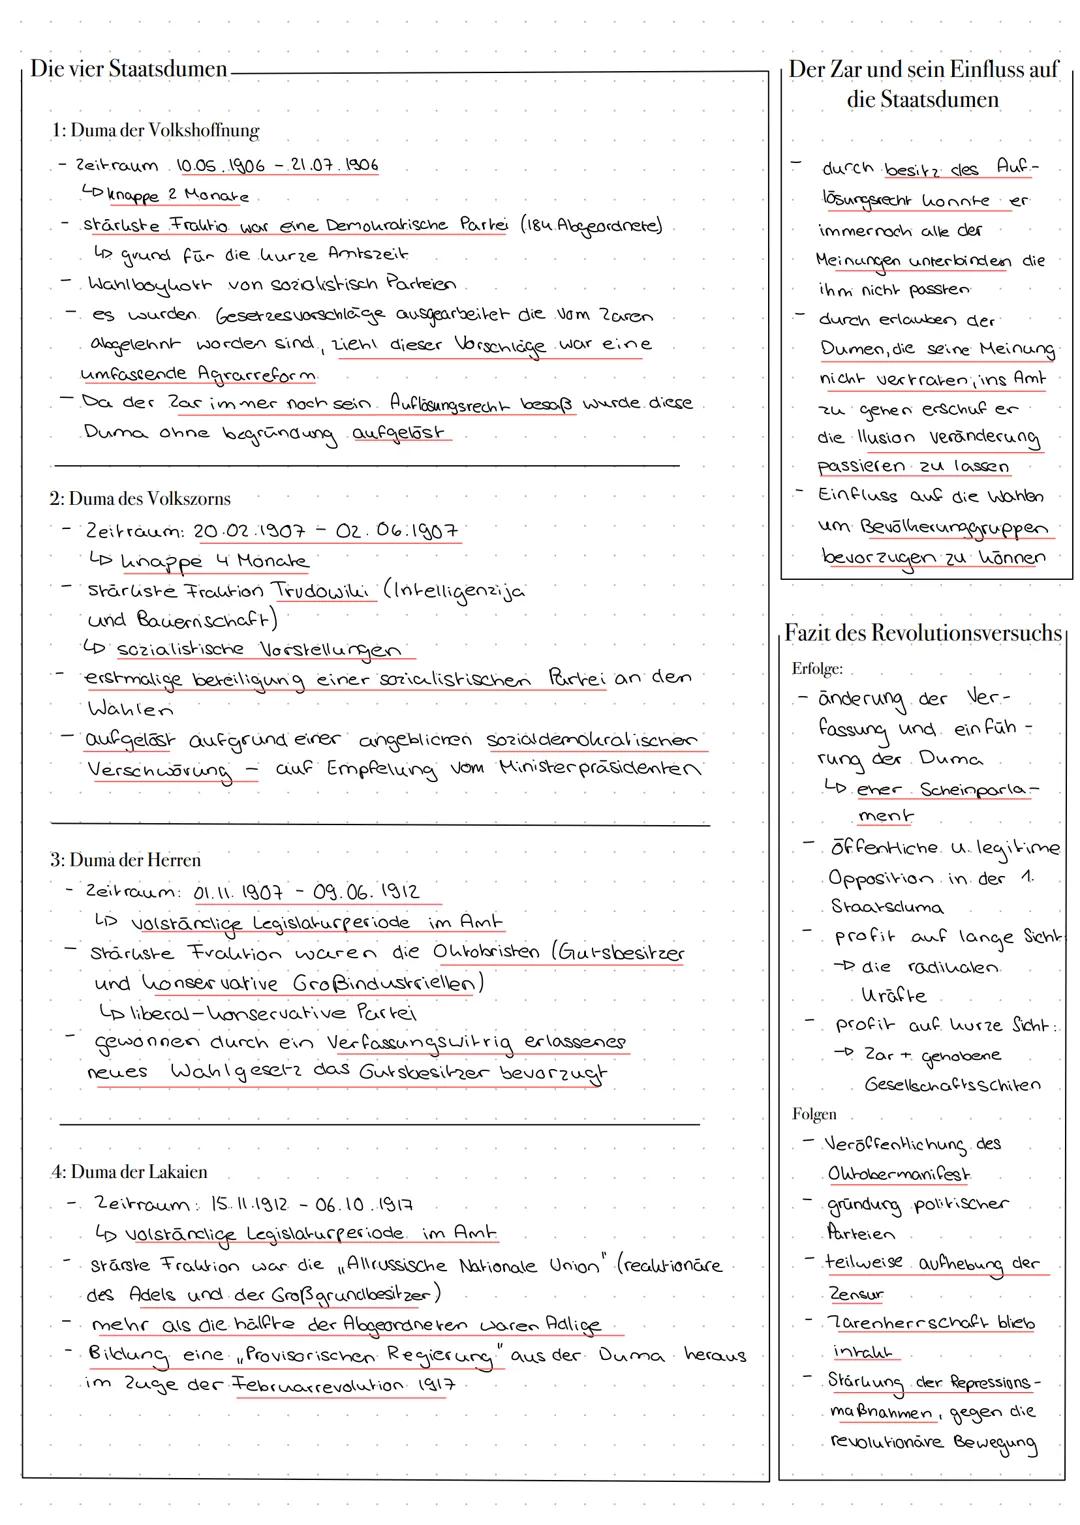 Die vier Staatsdumen
1: Duma der Volkshoffnung
- Zeitraum 10.05.1906 - 21.07.1906
↳ knappe 2 Monate
- stärkste Fraktio war eine Demokratische Partei (184 Abgeordnete)
↳ grund für die kurze Amtszeit
- Wahlboykott von sozialistisch Parteien
- es wurden Gesetzesvorschläge ausgearbeitet die vom Zaren
abgelehnt worden sind, ziehl dieser Vorschläge war eine
umfassende Agrarreform
- Da der Zar immer noch sein Auflösungsrecht besaß wurde diese
Duma ohne begründung aufgelöst
2: Duma des Volkszorns
- Zeitraum: 20.02.1907 - 02.06.1907
↳ knappe 4 Monate
- stärkste Fraktion Trudowiki (Intelligenzija
und Bauernschaft)
↳ sozialistische Vorstellungen
- erstmalige beteiligung einer sozialistischen Partei an den
Wahlen
- aufgelöst aufgrund einer angeblichen sozialdemokratischer
Verschwörung - auf Empfelung vom Ministerpräsidenten
3: Duma der Herren
- Zeitraum: 01.11.1907 - 09.06.1912
↳ volständige Legislaturperiode im Amt
- stärkste Fraktion waren die Oktobristen (Gutsbesitzer
und konservative Großindustriellen)
↳ liberal-konservative Partei
- gewonnen durch ein Verfassungswitrig erlassenes
neues Wahlgesetz das Gutsbesitzer bevorzugt
4: Duma der Lakaien
- Zeitraum: 15.11.1912 - 06.10.1917
↳ volständige Legislaturperiode im Amt
- stärste Fraktion war die „Allrussische Nationale Union" (reaktionäre
des Adels und der Großgrundbesitzer)
- mehr als die hälfte der Abgeordneten waren Adlige
- Bildung eine „Provisorischen Regierung" aus der Duma heraus
im Zuge der Februarrevolution 1917
Der Zar und sein Einfluss auf
die Staatsdumen
- durch besitz des Auf-
lösungsrecht konnte er
immernoch alle der
Meinungen unterbinden die
ihm nicht passten
- durch erlauben der
Dumen, die seine Meinung
nicht vertraten, ins Amt
zu gehen erschuf er
die Ilusion veränderung
passieren zu lassen
- Einfluss auf die Wahlen
um Bevölkerunggruppen
bevorzugen zu können
Fazit des Revolutionsversuchs
Erfolge:
- änderung der Ver-
fassung und einfüh-
rung der Duma
↳ eher Scheinparla-
ment
- öffentliche u. legitime
Opposition in der 1.
Staatsduma
- profit auf lange Sicht
→ die radikalen
Kräfte
- profit auf kurze Sicht:
→ Zar + gehobene
Gesellschaftsschiten
Folgen
- Veröffentlichung des
Oktobermanifest
- gründung politischer
Parteien
- teilweise aufhebung der
Zensur
- Zarenherrschaft blieb
intakt
- Stärkung der Repressions-
maßnahmen, gegen die
revolutionäre Bewegung